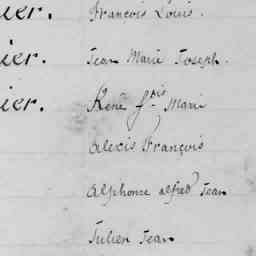 ier. François Louis.
ier. Jean Marie Joseph.
ier. René fois Marie
Alexis François
Alphonse alfred Jean
Julien Jean